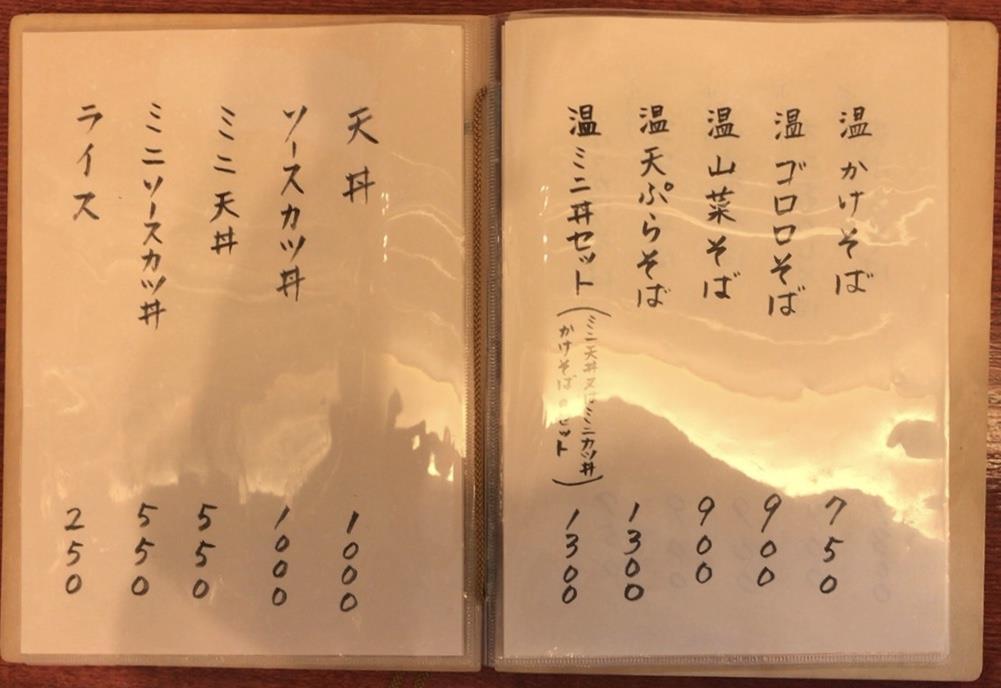 温かけそば 750
温ゴロロそば 900
温山菜そば 900
温天ぷらそば 1300
温ミニ丼セット(ミニ天丼又はミニカツ丼 かけそばのセット) 1300
天丼 1000
ソースカツ丼 1000
ミニ天丼 550
ミニソースカツ丼 550
ライス 250